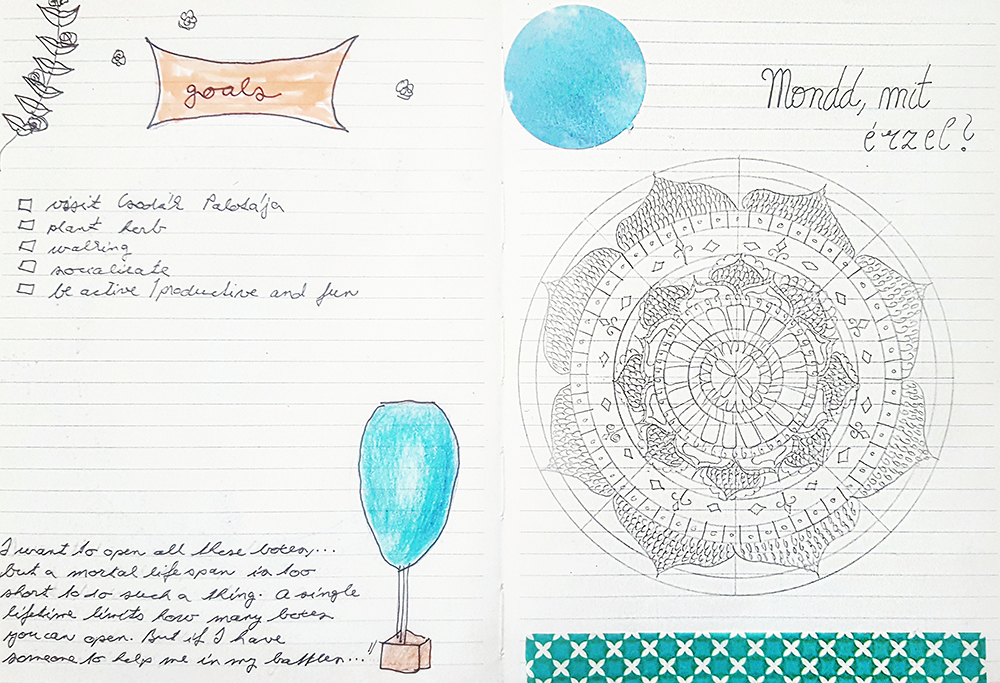 goals
visit Csodák Palotája
plant herb
walking
socializate
be active / productive and fun
I want to open all these boxes...
but a mortal lifespan is too
short to do such a thing. A single
lifetime limits how many boxes
you can open. But if I have
someone to help me in my battles...
Mondd, mit
érzel?